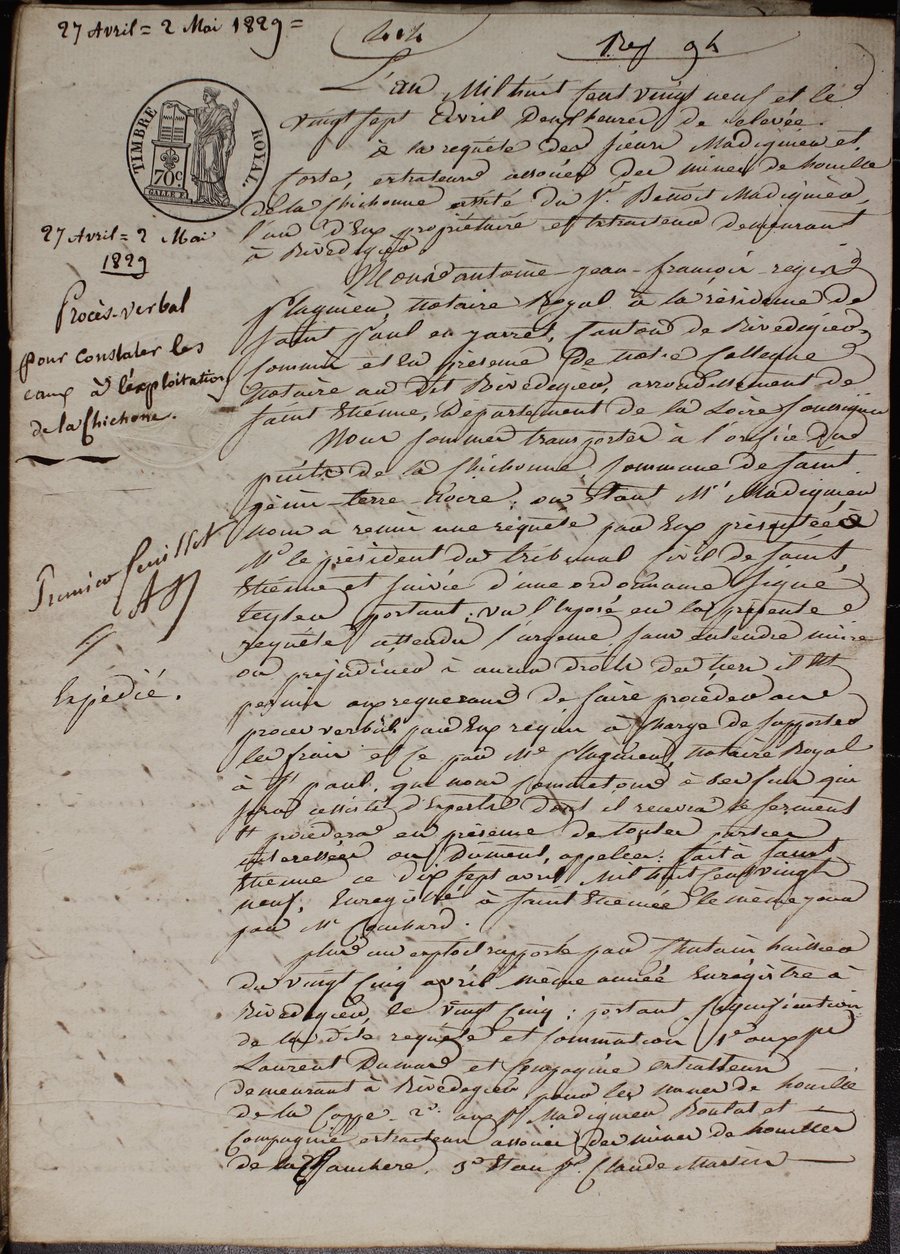 27 Avril = 2 Mai 1829 =
TIMBRE ROYAL.
70 c.
27 Avril = 2 Mai
1829
Procès-verbal
pour constater les
eaux à l'exploitation
de la Chichone.
Premier feuillet
Expédié.
L'an Mil huit Cent vingt neuf et le
vingt sept Avril Deux heures de relevée.
à la requête des sieurs Madignier et
extracteurs associés des mines de houille
de la Chichonne assisté du Sr Benoit Madignier,
l'un d'Eux propriétaire et Extracteur demeurant
à Rivedegier
Nous antoine-jean-françois-regis
Plagnieu, Notaire Royal à la résidence de
Saint Paul en jarret, Canton de Rivedegier
commis et En présence De notre Collegue
Notaire au dit Rivedegier, arrondissement de
Saint Etienne, Département de la Loire soussignés
Nous sommes transportés à l'orifice du
puits de la Chichonne Commune de Saint
génis-terre-Noire; ou Etant Mr Madignier
nous a remis une requête par Eux présentée à
Mr le président du tribunal Civil de Saint
Etienne et suivie d'une ordonnance Signé
Teyter portant; vu l'Exposé en la présente
requête attendu l'urgence sans entendre nuire
ou préjudicier à aucun droit des tiers il Est
permis aux requerans de faire procéder au
procès verbal par Eux requis à Charge de supporter
les frais et Ce par Me Plagnieu, Notaire Royal
à St paul, que nous Commettons à cet fin qui
sera assisté d'Experts dont il recevra le serment
Et procédera en présence de toutes parties
interessées ou Dûment appelées: fait à Saint
Etienne ce dix sept avril Mil huit Cent vingt
neuf. Enregistré à Saint Etienne le même jour
par Mr Couchard.
plus un exploit rapporté par Chatain huissier
du vingt Cinq avril même année Enrégistré à
Rivedegier le vingt Cinq; portant signification
de la dite requête et sommation 1° aux srs
Laurent Dumas et Compagnie extracteurs
demeurant à Rivedegier pour les mines de houille
de la Cappe 2° aux srs Madignier Boulat et
Compagnie extracteurs associés des mines de houilles
de la 3° Et au sr. Claude Martin